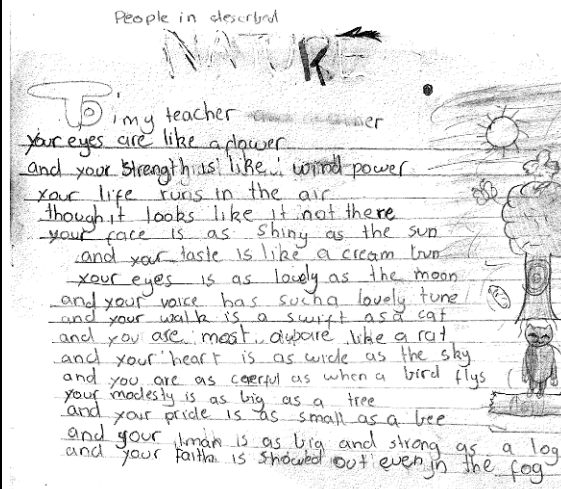 People in described
NATURE
To my teacher
your eyes are like a flower
and your strength is like wind power
your life runs in the air
though it looks like it not there
your face is as shiny as the sun
and your taste is like a cream bun
your eyes is as lovely as the moon
and your voice has such a lovely tune
and your walk is a swift as a cat
and you are most like a rat
and your heart is as wide as the sky
and you are as as when a bird flys
your modesty is as big as a tree
and your pride is as small as a bee
and your iman is as big and strong as a log
and your faith is showed out even in the fog